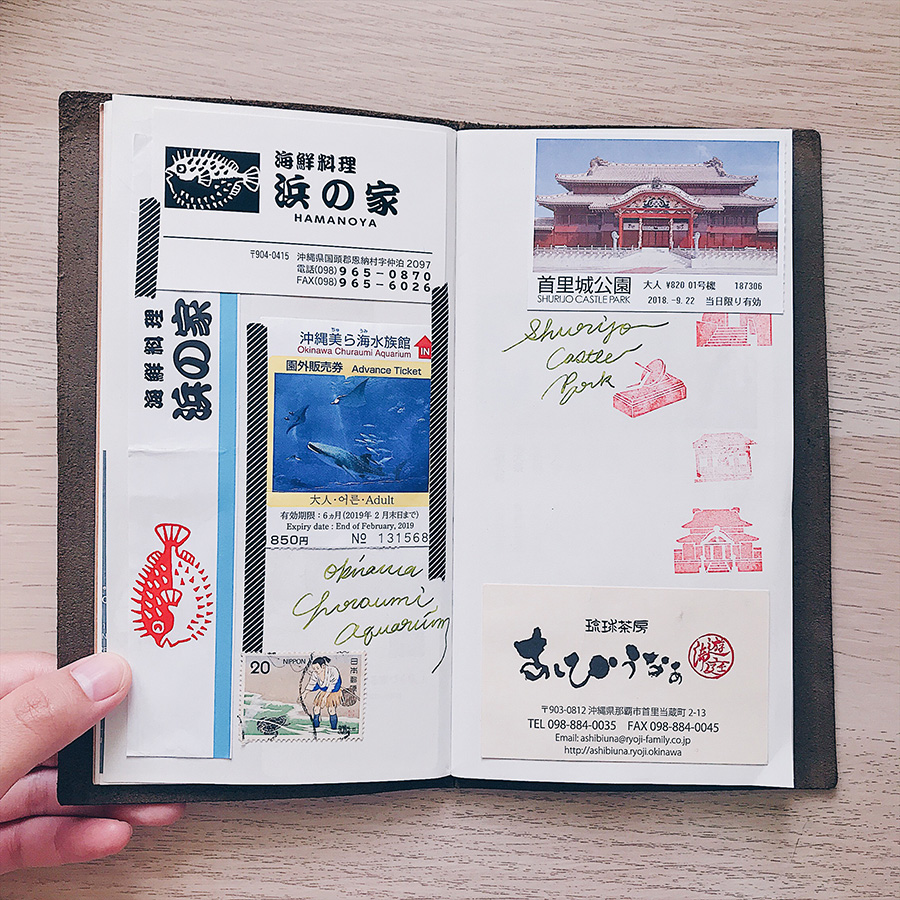 海鮮料理
浜の家
HAMANOYA
〒904-0415 沖縄県国頭郡恩納村字仲泊 2097
電話(098)965-0870
FAX(098)965-6026
海鮮料理
浜の家
沖縄美ら海水族館
ちゅ うみ
Okinawa Churaumi Aquarium
IN
園外販売券 Advance Ticket
大人・어른・Adult
有効期限:6ヵ月(2019年 2月末日まで)
Expiry date : End of February, 2019
850円 № 131568
Okinawa
Churaumi
Aquarium
20 NIPPON 日本郵便
首里城公園
SHURIJO CASTLE PARK
大人 ¥820 01号機 187306
2018.-9.22 当日限り有効
Shurijo
Castle
Park
琉球茶房
あしびうなぁ
〒903-0812 沖縄県那覇市首里当蔵町 2-13
TEL 098-884-0035 FAX 098-884-0045
Email: ashibiuna@ryoji-family.co.jp
http://ashibiuna.ryoji.okinawa